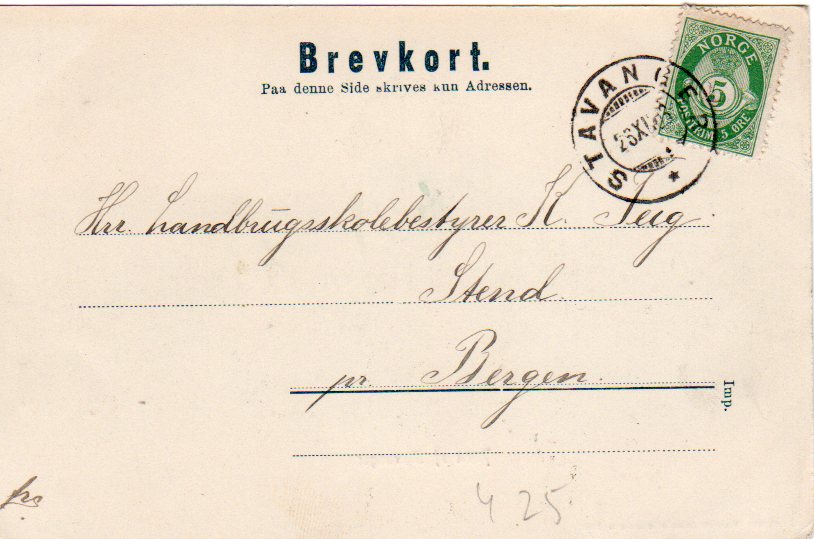 Brevkort.
Paa denne Side skrives kun Adressen.
NORGE
5
POSTFRIM. 5 ØRE
STAVANGER
Hrr. Landbrugsskolebestyrer K. Teig
Stend
pr. Bergen.
Imp.
4 25